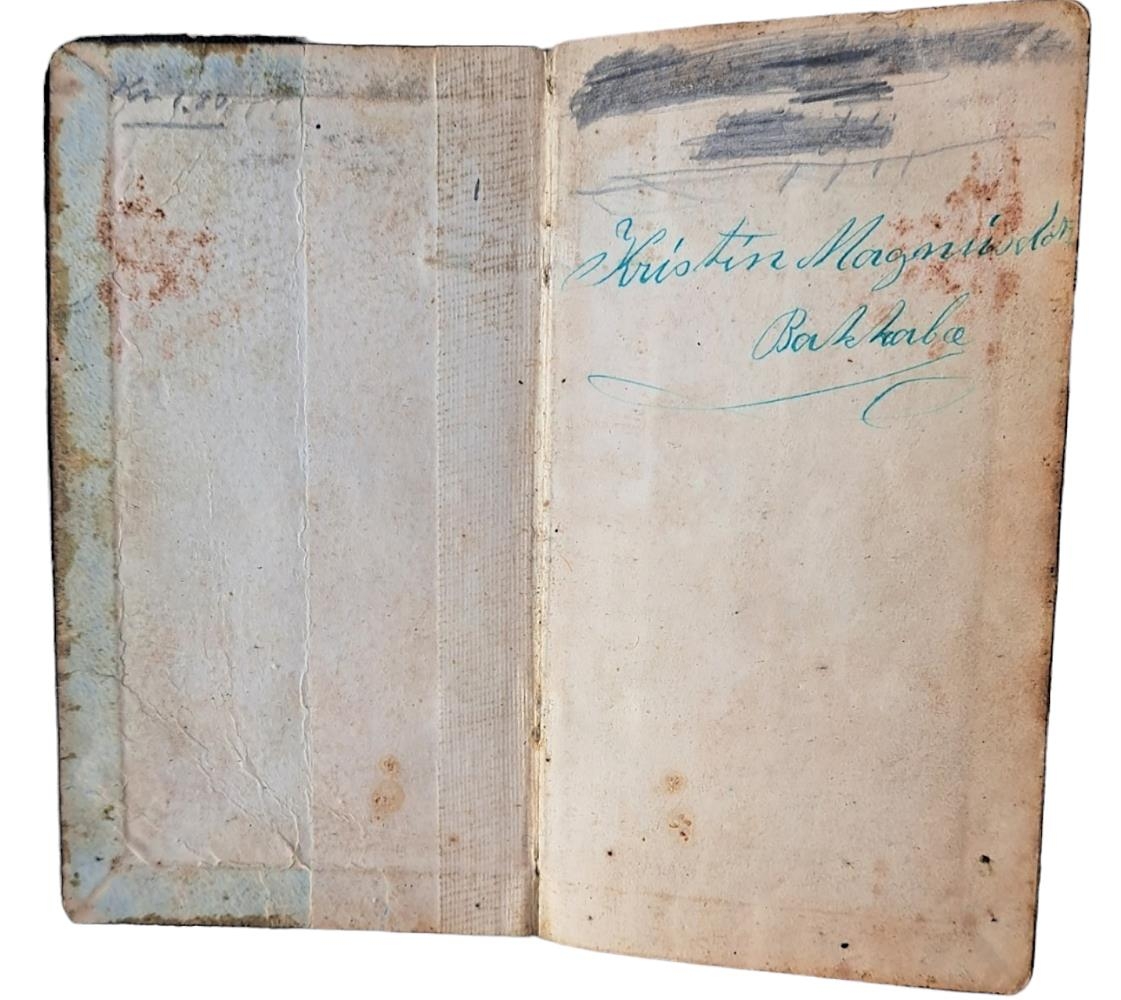 Kr 1.80
Kristín Magnúsdót
Bakkabæ